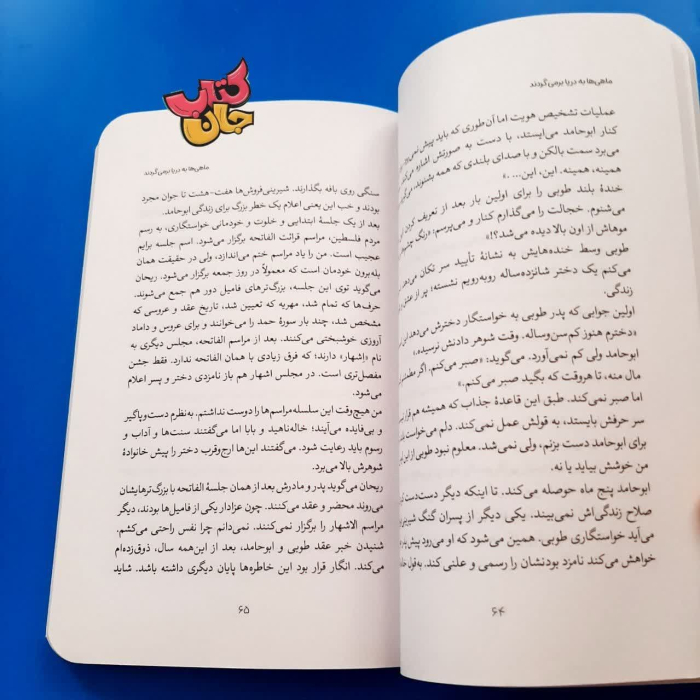 ماهی‌ها به دریا برمی‌گردند
عملیات تشخیص هویت اما آن‌طوری که باید پیش نمی‌رود.
کنار ابوحامد می‌ایستد، با دست به صورتش اشاره می‌کند
می‌برد سمت بالکن و با صدای بلندی که همه بشنوند، می‌گوید
همینه، همینه. این، این... .»
خندهٔ بلند طوبی را برای اولین بار بعد از تعریف کردن این
می‌شنوم. خجالت را می‌گذارم کنار و می‌پرسم: «رنگ چشم
موهاش از اون بالا دیده می‌شد؟!»
طوبی وسط خنده‌هایش به نشانهٔ تأیید سر تکان می‌دهد
می‌کنم یک دختر شانزده‌ساله روبه‌رویم نشسته؛ پر از عشق
زندگی.
اولین جوابی که پدر طوبی به خواستگار دخترش می‌دهد این
«دخترم هنوز کم‌سن‌وساله. وقت شوهر دادنش نرسیده.»
ابوحامد ولی کم نمی‌آورد. می‌گوید: «صبر می‌کنم. اگر مطمئن
مال منه، تا هروقت که بگید صبر می‌کنم.»
اما صبر نمی‌کند. طبق این قاعدهٔ جذاب که همیشه هم قرار
سر حرفش بایستد، به قولش عمل نمی‌کند. دلم می‌خواست
برای ابوحامد دست بزنم، ولی نمی‌شد. معلوم نبود طوبی از این
من خوشش بیاید یا نه.
ابوحامد پنج ماه حوصله می‌کند. تا اینکه دیگر دست‌دست
صلاح زندگی‌اش نمی‌بیند. یکی دیگر از پسران گنگ شیرینی
می‌آید خواستگاری طوبی. همین می‌شود که او می‌رود پیش
خواهش می‌کند نامزد بودنشان را رسمی و علنی کند. به‌قول
۶۴
کتاب
جان
ماهی‌ها به دریا برمی‌گردند
سنگی روی بافه بگذارند. شیرینی‌فروش‌ها هفت-هشت تا جوان مجرد
بودند و خب این یعنی اعلام یک خطر بزرگ برای زندگی ابوحامد.
بعد از یک جلسهٔ ابتدایی و خلوت و خودمانی خواستگاری، به رسم
مردم فلسطین، مراسم قرائت الفاتحه برگزار می‌شود. اسم جلسه برایم
عجیب است. من را یاد مراسم ختم می‌اندازد، ولی در حقیقت همان
بله‌برون خودمان است که معمولاً در روز جمعه برگزار می‌شود. ریحان
می‌گوید توی این جلسه، بزرگ‌ترهای فامیل دور هم جمع می‌شوند.
حرف‌ها که تمام شد، مهریه که تعیین شد، تاریخ عقد و عروسی که
مشخص شد، چند بار سورهٔ حمد را می‌خوانند و برای عروس و داماد
آرزوی خوشبختی می‌کنند. بعد از مراسم الفاتحه، مجلس دیگری به
نام «إشهار» دارند؛ که فرق زیادی با همان الفاتحه ندارد. فقط جشن
مفصل‌تری است. در مجلس اشهار هم باز نامزدی دختر و پسر اعلام
می‌شود.
من هیچ‌وقت این سلسله‌مراسم‌ها را دوست نداشتم. به‌نظرم دست‌وپاگیر
و بی‌فایده می‌آیند؛ خاله‌ناهید و بابا اما می‌گفتند سنت‌ها و آداب و
رسوم باید رعایت شود. می‌گفتند این‌ها ارج‌وقرب دختر را پیش خانوادهٔ
شوهرش بالا می‌برد.
ریحان می‌گوید پدر و مادرش بعد از همان جلسهٔ الفاتحه با بزرگ‌ترهایشان
می‌روند محضر و عقد می‌کنند. چون عزادار یکی از فامیل‌ها بودند، دیگر
مراسم الاشهار را برگزار نمی‌کنند. نمی‌دانم چرا نفس راحتی می‌کشم.
شنیدن خبر عقد طوبی و ابوحامد، بعد از این‌همه سال، ذوق‌زده‌ام
می‌کند. انگار قرار بود این خاطره‌ها پایان دیگری داشته باشد. شاید
۶۵